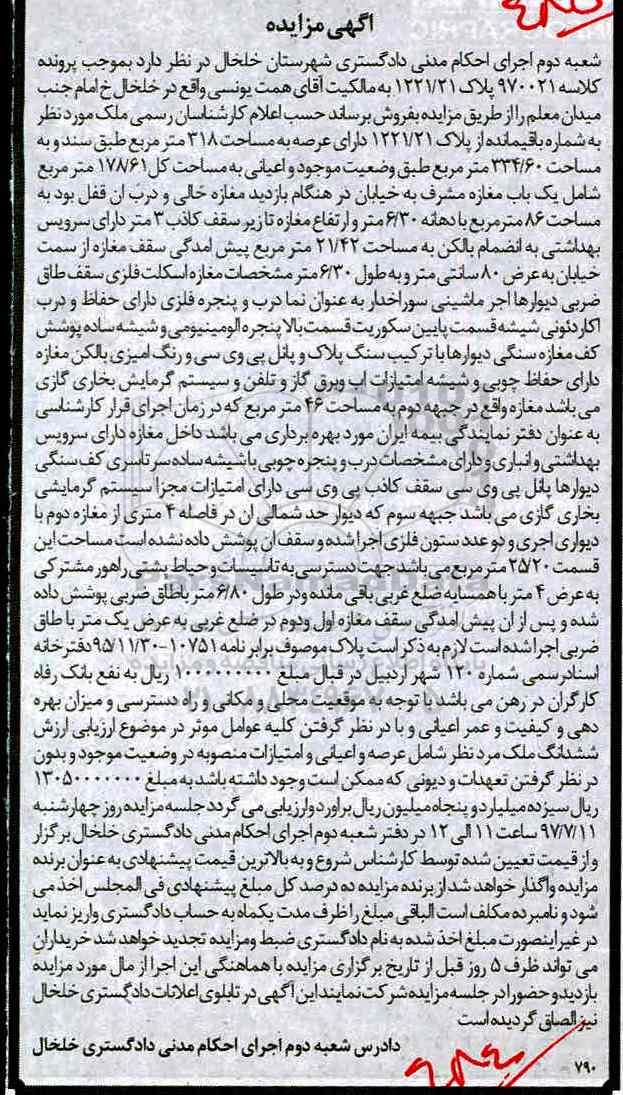 آگهی مزایده
شعبه دوم اجرای احکام مدنی دادگستری شهرستان خلخال در نظر دارد بموجب پرونده
کلاسه ۹۷۰۰۲۱ پلاک ۱۲۲۱/۲۱ به مالکیت آقای همت یونسی واقع در خلخال خ امام جنب
میدان معلم را از طریق مزایده بفروش برساند حسب اعلام کارشناسان رسمی ملک مورد نظر
به شماره باقیمانده از پلاک ۱۲۲۱/۲۱ دارای عرصه به مساحت ۳۱۸ متر مربع طبق سند و به
مساحت ۳۳۴/۶۰ متر مربع طبق وضعیت موجود و اعیانی به مساحت کل ۱۷۸/۶۱ متر مربع
شامل یک باب مغازه مشرف به خیابان در هنگام بازدید مغازه خالی و درب ان قفل بود به
مساحت ۸۶ مترمربع با دهانه ۶/۳۰ متر و ارتفاع مغازه تا زیر سقف کاذب ۳ متر دارای سرویس
بهداشتی به انضمام بالکن به مساحت ۲۱/۴۲ متر مربع پیش امدگی سقف مغازه از سمت
خیابان به عرض ۸۰ سانتی متر و به طول ۶/۳۰ متر مشخصات مغازه اسکلت فلزی سقف طاق
ضربی دیوارها اجر ماشینی سوراخدار به عنوان نما درب و پنجره فلزی دارای حفاظ و درب
اکاردئونی شیشه قسمت پایین سکوریت قسمت بالا پنجره الومینیومی و شیشه ساده پوشش
کف مغازه سنگی دیوارها با ترکیب سنگ پلاک و پانل پی وی سی و رنگ امیزی بالکن مغازه
دارای حفاظ چوبی و شیشه امتیازات اب وبرق گاز و تلفن و سیستم گرمایش بخاری گازی
می باشد مغازه واقع در جبهه دوم به مساحت ۴۶ متر مربع که در زمان اجرای قرار کارشناسی
به عنوان دفتر نمایندگی بیمه ایران مورد بهره برداری می باشد داخل مغازه دارای سرویس
بهداشتی و انباری و دارای مشخصات درب و پنجره چوبی با شیشه ساده سرتاسری کف سنگی
دیوارها پانل پی وی سی سقف کاذب پی وی سی دارای امتیازات مجزا سیستم گرمایشی
بخاری گازی می باشد جبهه سوم که دیوار حد شمالی ان در فاصله ۴ متری از مغازه دوم با
دیواری اجری و دو عدد ستون فلزی اجرا شده و سقف ان پوشش داده نشده است مساحت این
قسمت ۲۵/۲۰ متر مربع می باشد جهت دسترسی به تاسیسات و حیاط پشتی راهور مشترکی
به عرض ۴ متر با همسایه ضلع غربی باقی مانده ودر طول ۶/۸۰ متر باطاق ضربی پوشش داده
شده و پس از ان پیش امدگی سقف مغازه اول ودوم در ضلع غربی به عرض یک متر با طاق
ضربی اجرا شده است لازم به ذکر است پلاک موصوف برابر نامه ۱۰۷۵۱-۹۵/۱۱/۳۰ دفترخانه
اسناد رسمی شماره ۱۲۰ شهر اردبیل در قبال مبلغ ۱۰۰۰۰۰۰۰۰۰ ریال به نفع بانک رفاه
کارگران در رهن می باشد با توجه به موقعیت محلی و مکانی و راه دسترسی و میزان بهره
دهی و کیفیت و عمر اعیانی و با در نظر گرفتن کلیه عوامل موثر در موضوع ارزیابی ارزش
ششدانگ ملک مرد نظر شامل عرصه و اعیانی و امتیازات منصوبه در وضعیت موجود و بدون
در نظر گرفتن تعهدات و دیونی که ممکن است وجود داشته باشد به مبلغ ۱۳۰۵۰۰۰۰۰۰۰
ریال سیزده میلیارد و پنجاه میلیون ریال براورد وارزیابی می گردد جلسه مزایده روز چهارشنبه
۹۷/۷/۱۱ ساعت ۱۱ الی ۱۲ در دفتر شعبه دوم اجرای احکام مدنی دادگستری خلخال برگزار
و از قیمت تعیین شده توسط کارشناس شروع و به بالاترین قیمت پیشنهادی به عنوان برنده
مزایده واگذار خواهد شد از برنده مزایده ده درصد کل مبلغ پیشنهادی فی المجلس اخذ می
شود و نامبرده مکلف است الباقی مبلغ را ظرف مدت یکماه به حساب دادگستری واریز نماید
در غیر اینصورت مبلغ اخذ شده به نام دادگستری ضبط ومزایده تجدید خواهد شد خریداران
می تواند ظرف ۵ روز قبل از تاریخ برگزاری مزایده با هماهنگی این اجرا از مال مورد مزایده
بازدید و حضورا در جلسه مزایده شرکت نمایند این آگهی در تابلوی اعلانات دادگستری خلخال
نیز الصاق گردیده است
دادرس شعبه دوم اجرای احکام مدنی دادگستری خلخال
۷۹۰